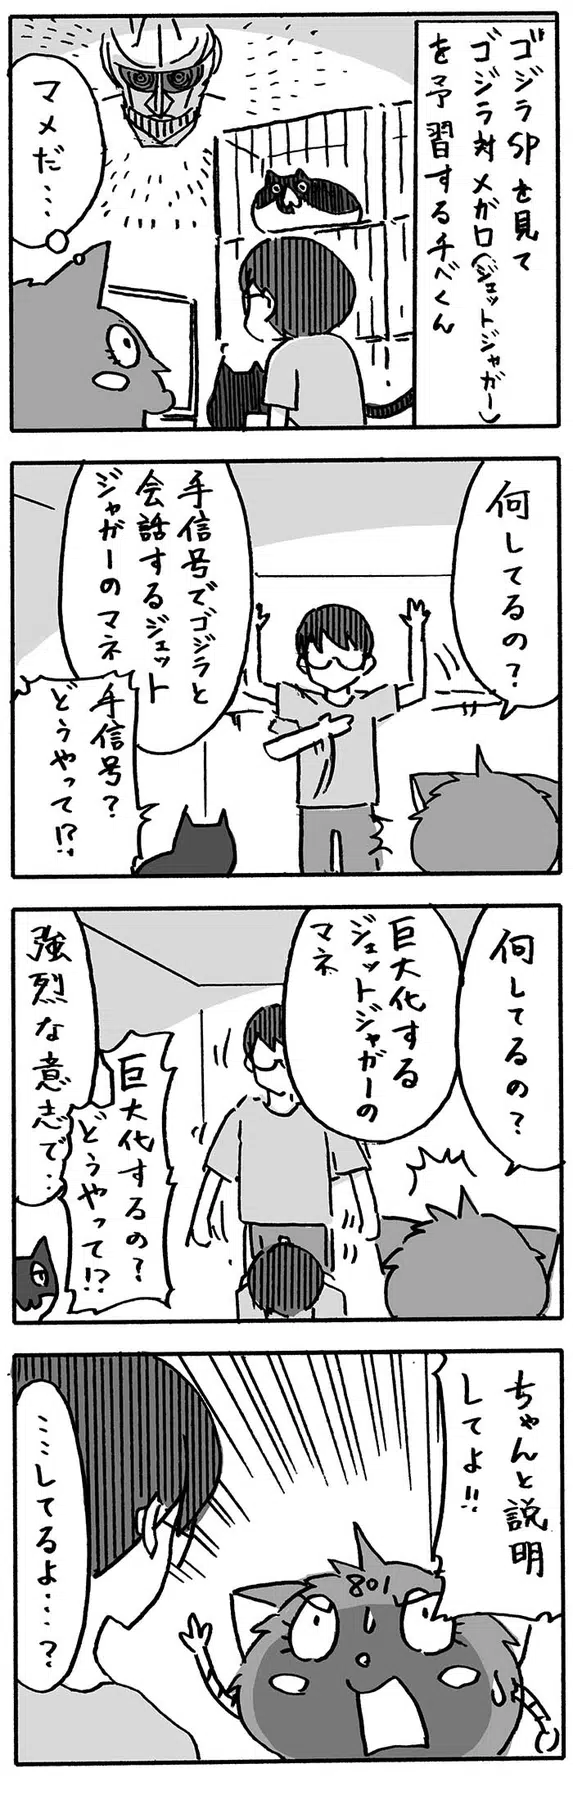 ゴジラSPを見て
ゴジラ対メガロ(ジェットジャガー)
を予習するチベくん
マメだ…
何してるの?
手信号でゴジラと
会話するジェット
ジャガーのマネ
手信号?
どうやって!?
何してるの?
巨大化する
ジェットジャガーの
マネ
巨大化するの?
どうやって!?
強烈な意志で…
ちゃんと説明
してよ!!
801
……してるよ…?